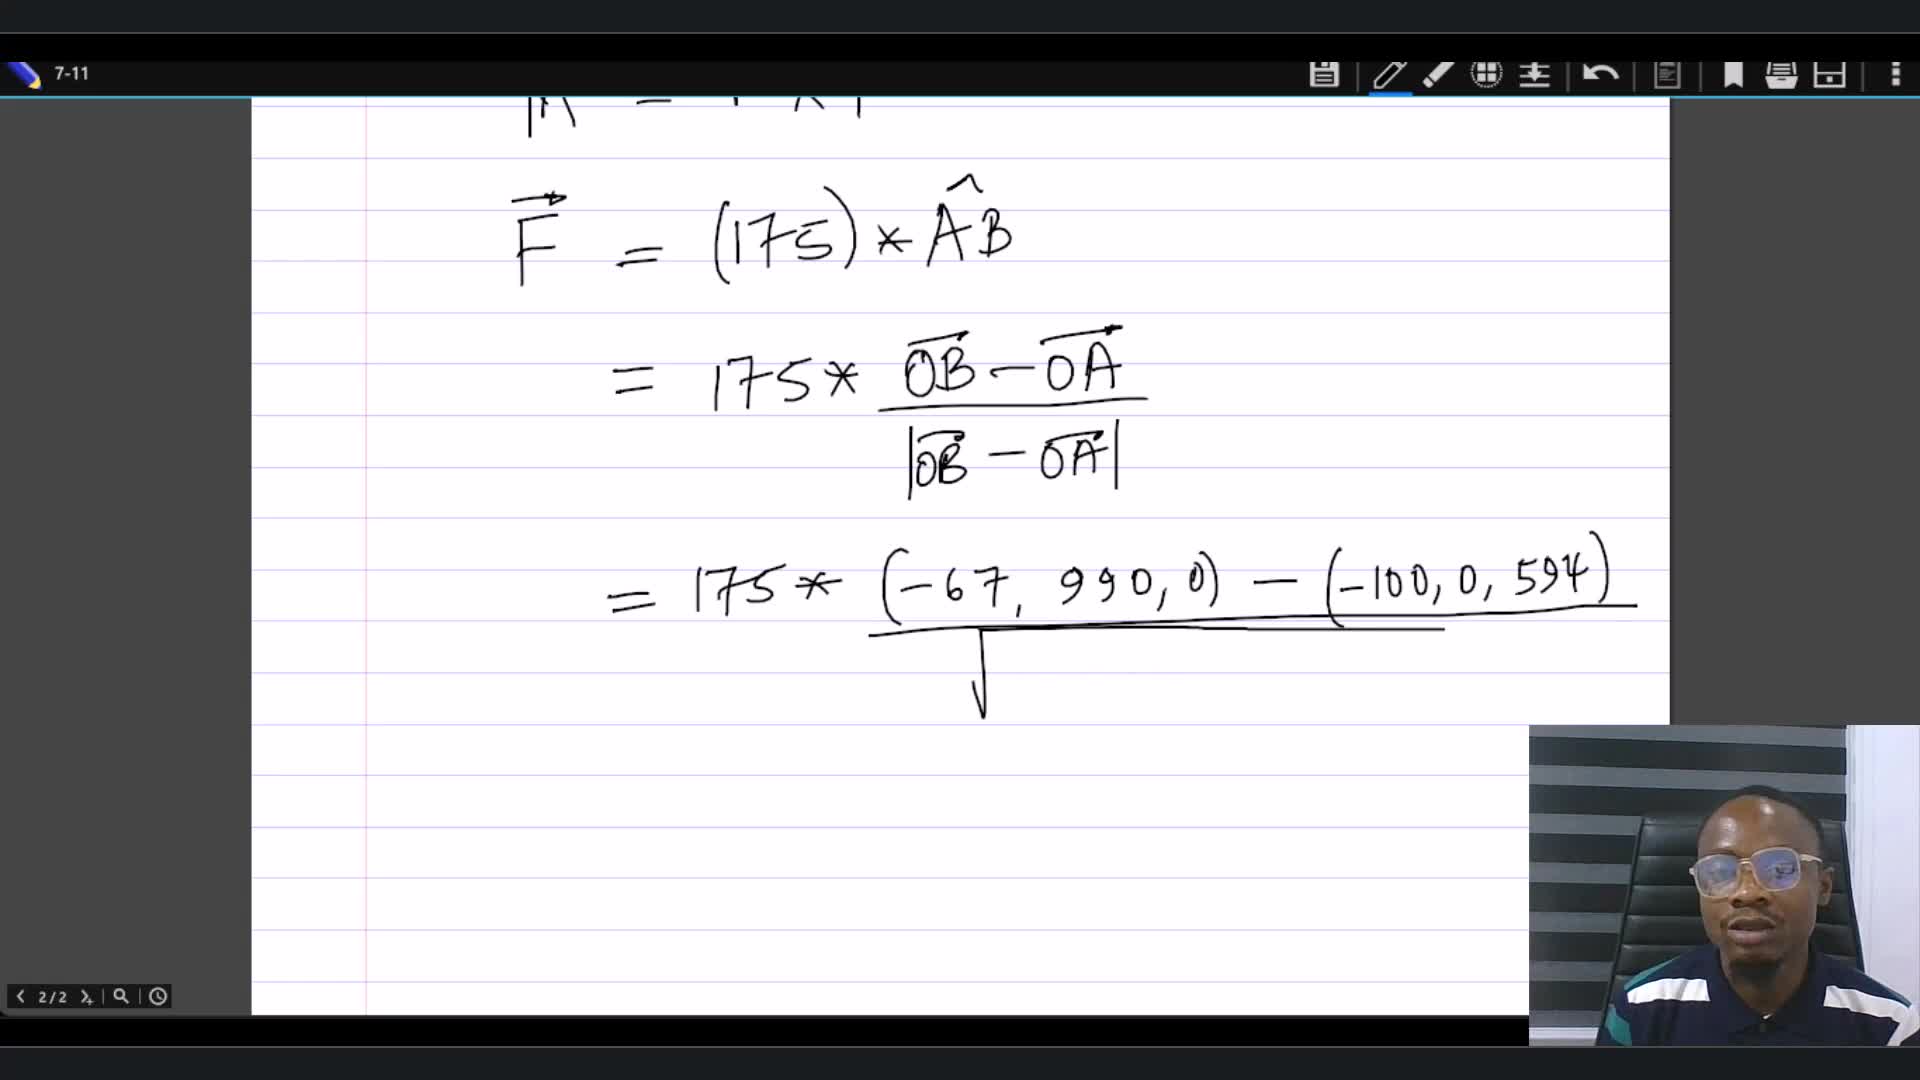 7-11
F = (175) * ÂB
= 175 * OB - OA
|OB - OA|
= 175 * (-67, 990, 0) - (-100, 0, 594)
√
2/2